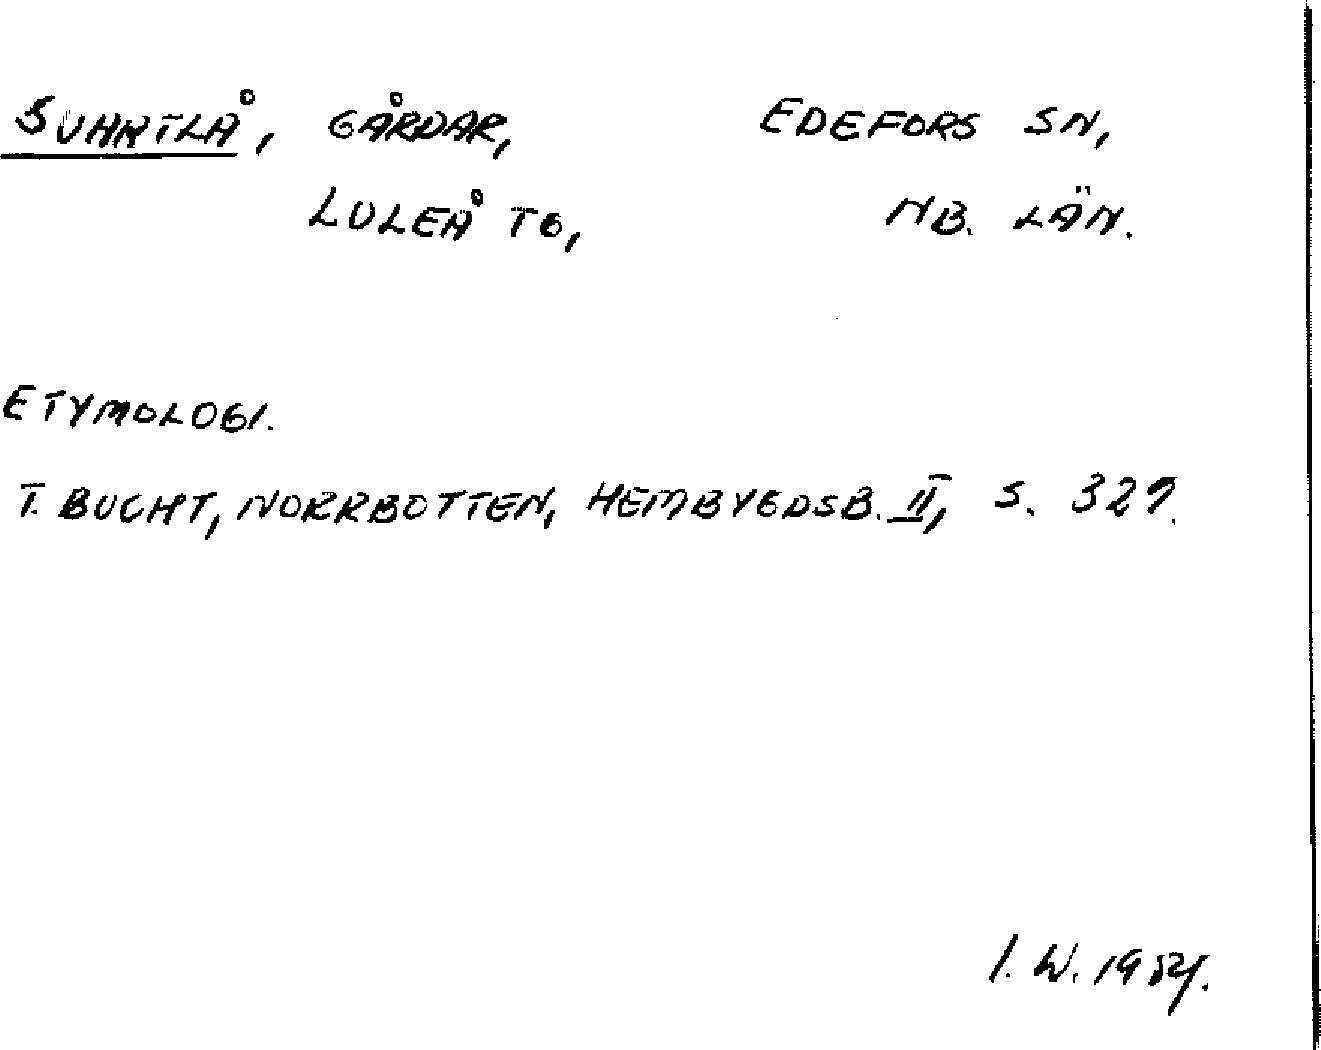 SVARTLÅ, GÅRDAR, EDEFORS SN,
LULEÅ TG, NB. LÄN.
ETYMOLOGI.
T. BUCHT, NORRBOTTEN, HEMBYGDSB. II, S. 327.
I. W. 1954.